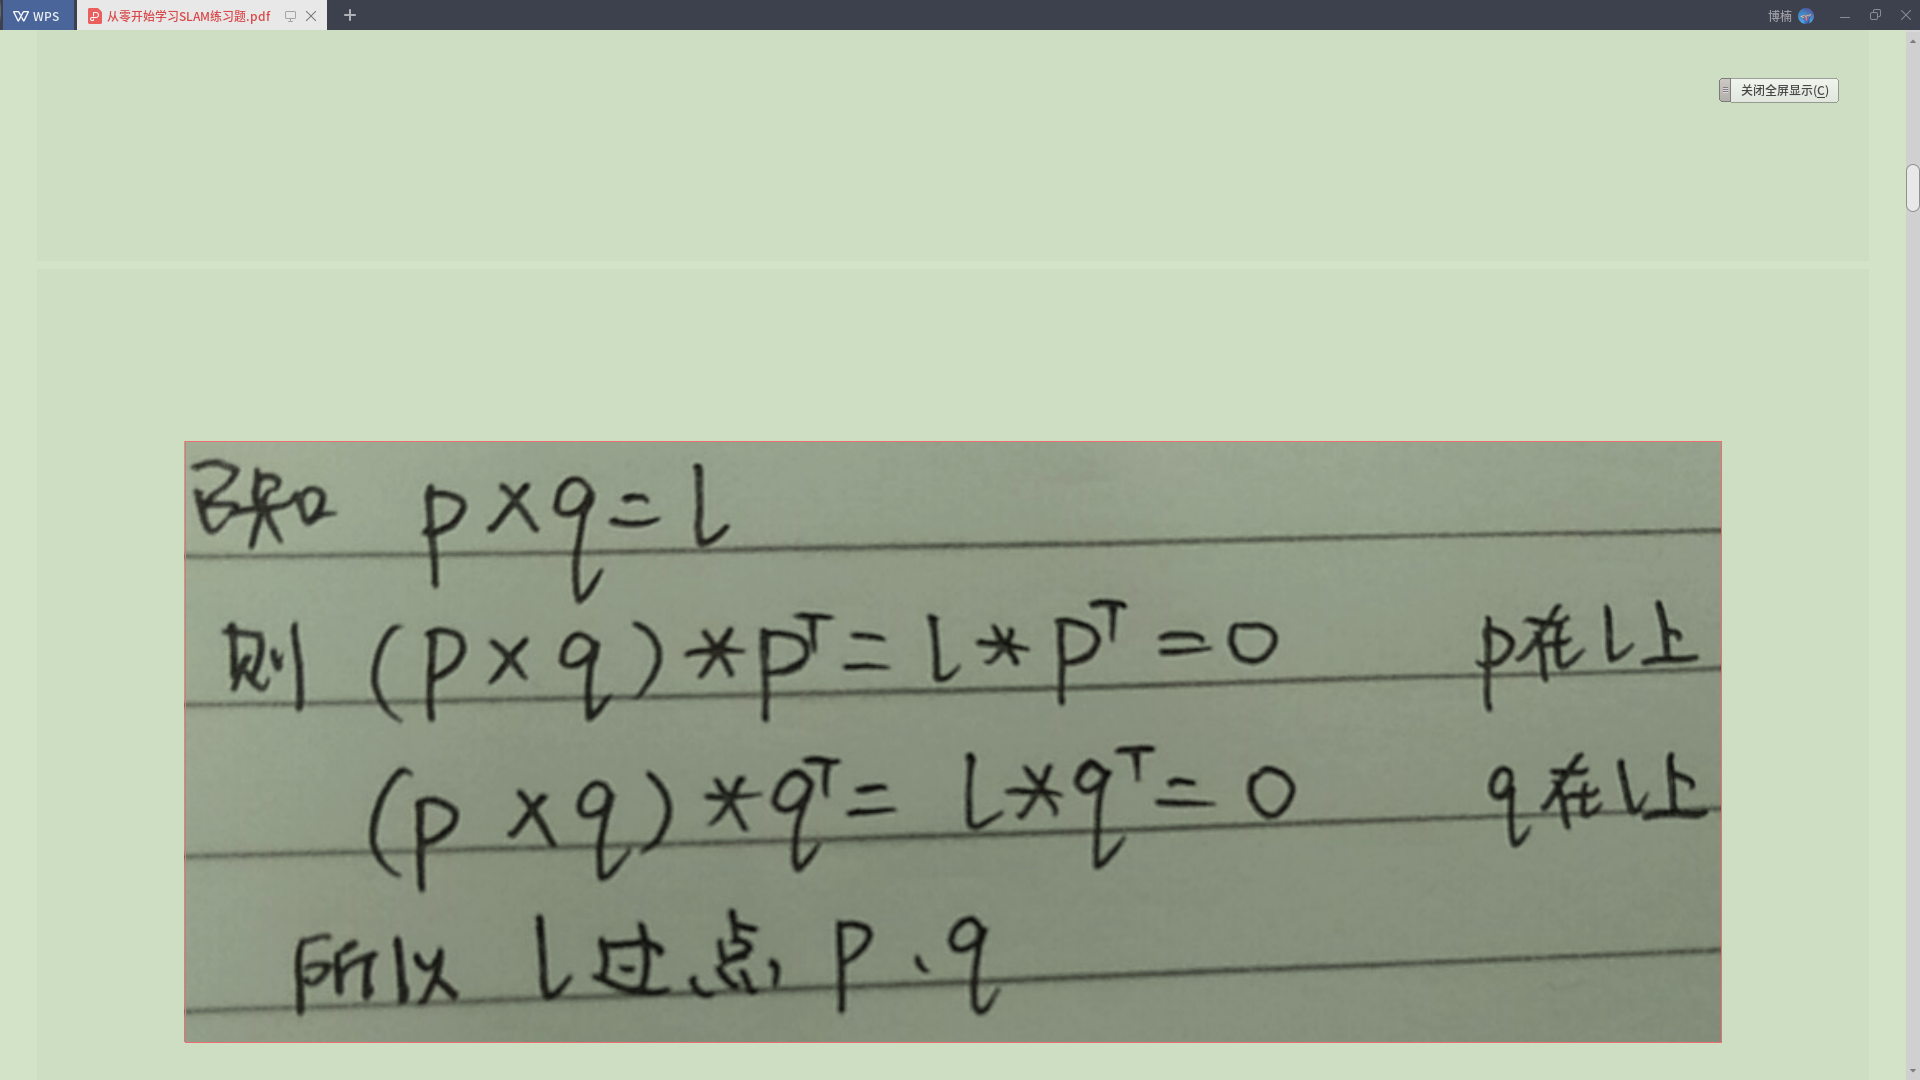 WPS 从零开始学习SLAM练习题.pdf 博楠
关闭全屏显示(C)
已知 p×q=l
则 (p×q)*pᵀ=l*pᵀ=0 p在l上
(p×q)*qᵀ=l*qᵀ=0 q在l上
所以 l过点 p、q